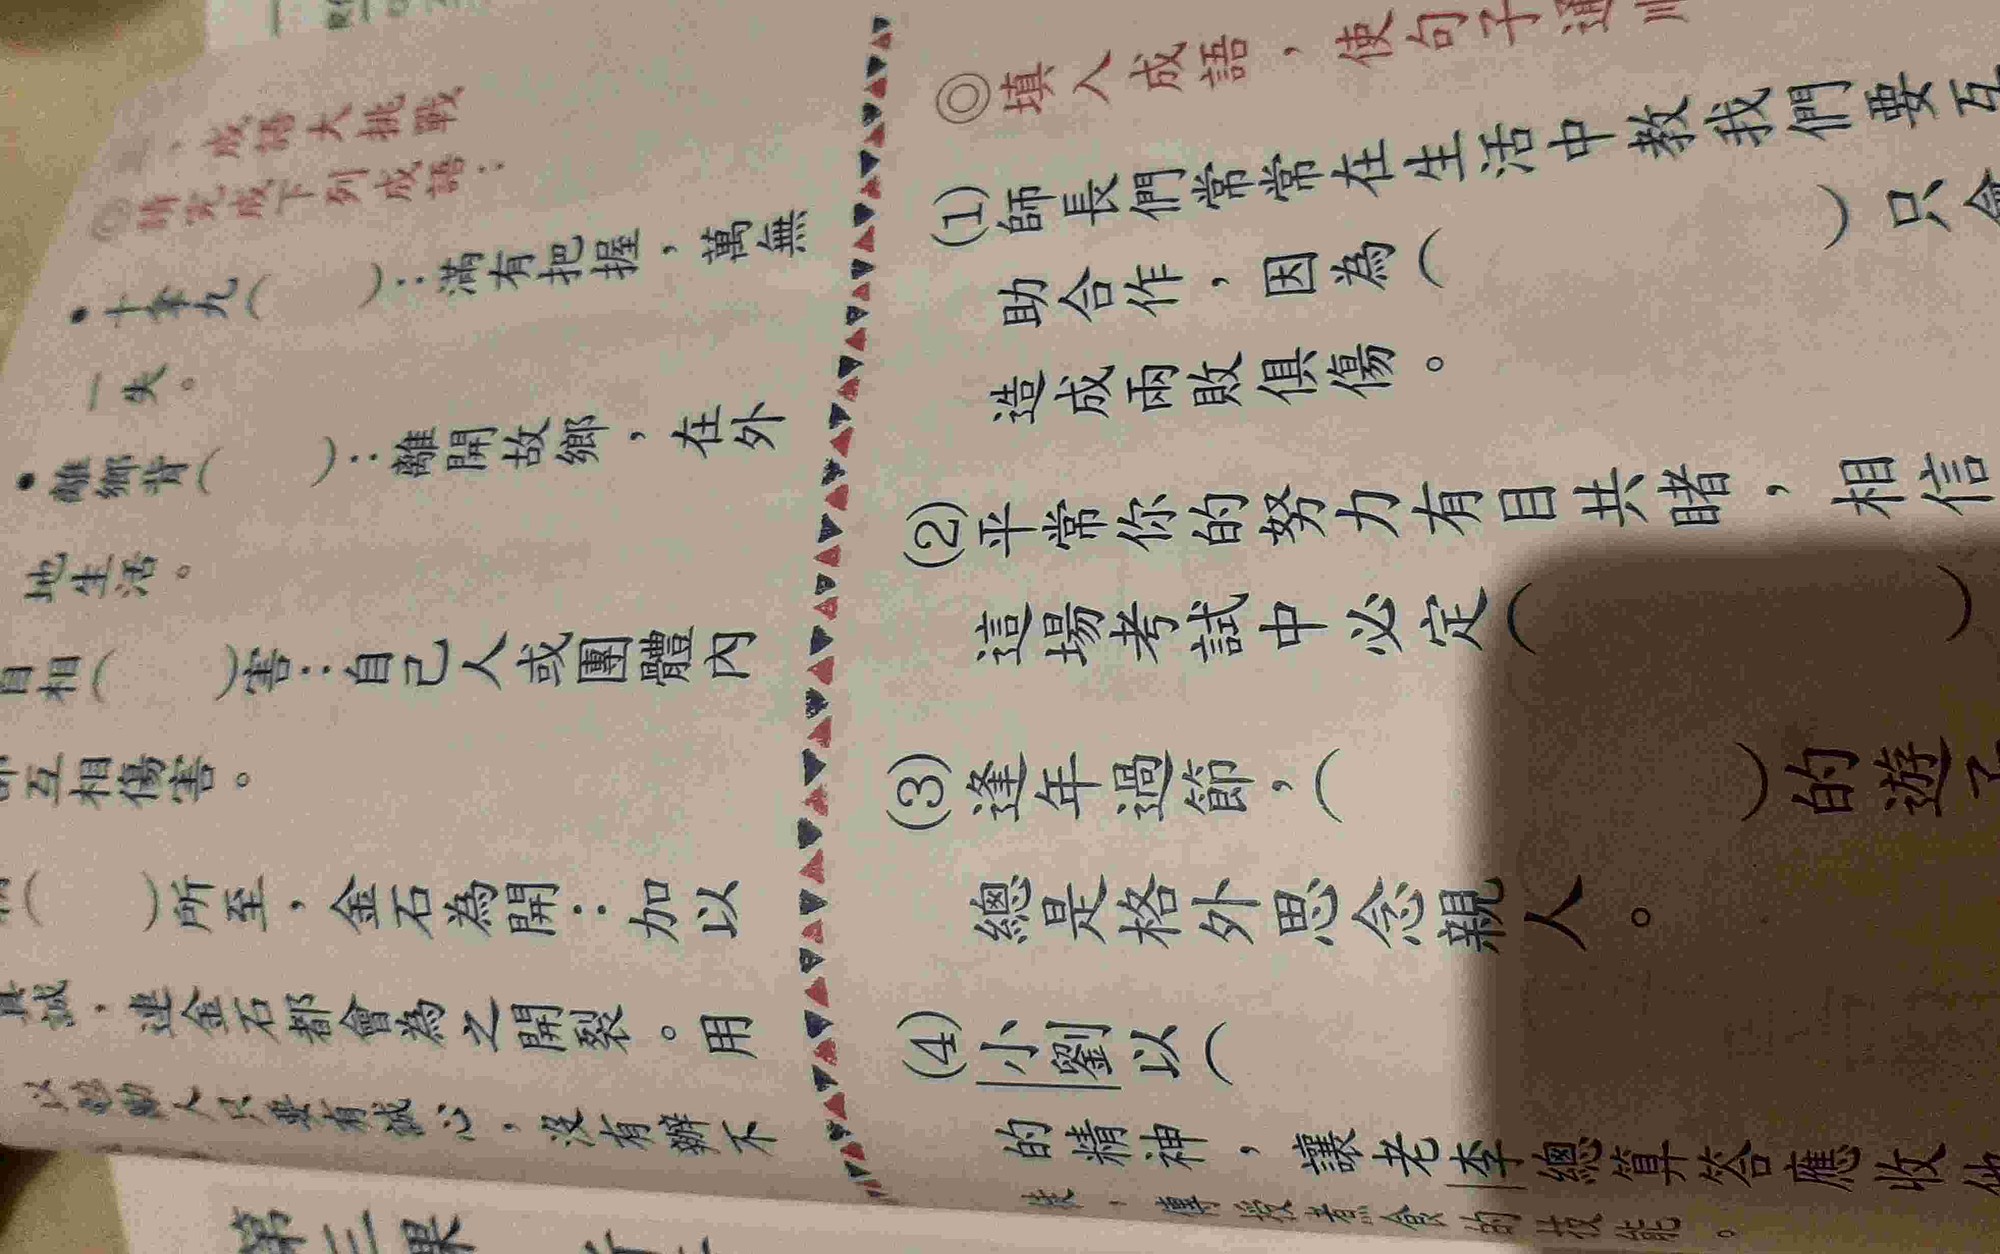 、成語大挑戰
◎請完成下列成語：
•十拿九（　）：滿有把握，萬無
一失。
•離鄉背（　）：離開故鄉，在外
地生活。
自相（　）害：自己人或團體內
部互相傷害。
（　）所至，金石為開：加以
真誠，連金石都會為之開裂。用
以鼓勵人只要有誠心，沒有辦不
◎填入成語，使句子通順
(1)師長們常常在生活中教我們要互
助合作，因為（　）只會
造成兩敗俱傷。
(2)平常你的努力有目共睹，相信
這場考試中必定（　）
(3)逢年過節，（　）的遊子
總是格外思念親人。
(4)小劉以（
的精神，讓老李總算答應收他
的技能。
第三課